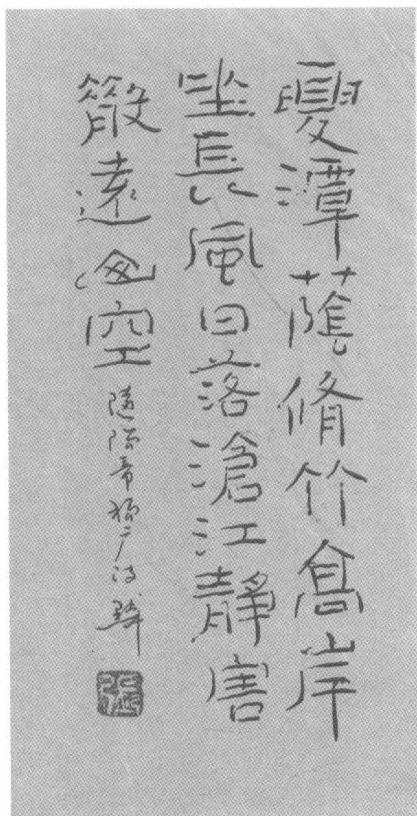 夏潭蔭脩竹高岸
坐長風日落滄江靜雲
散遠山空
張